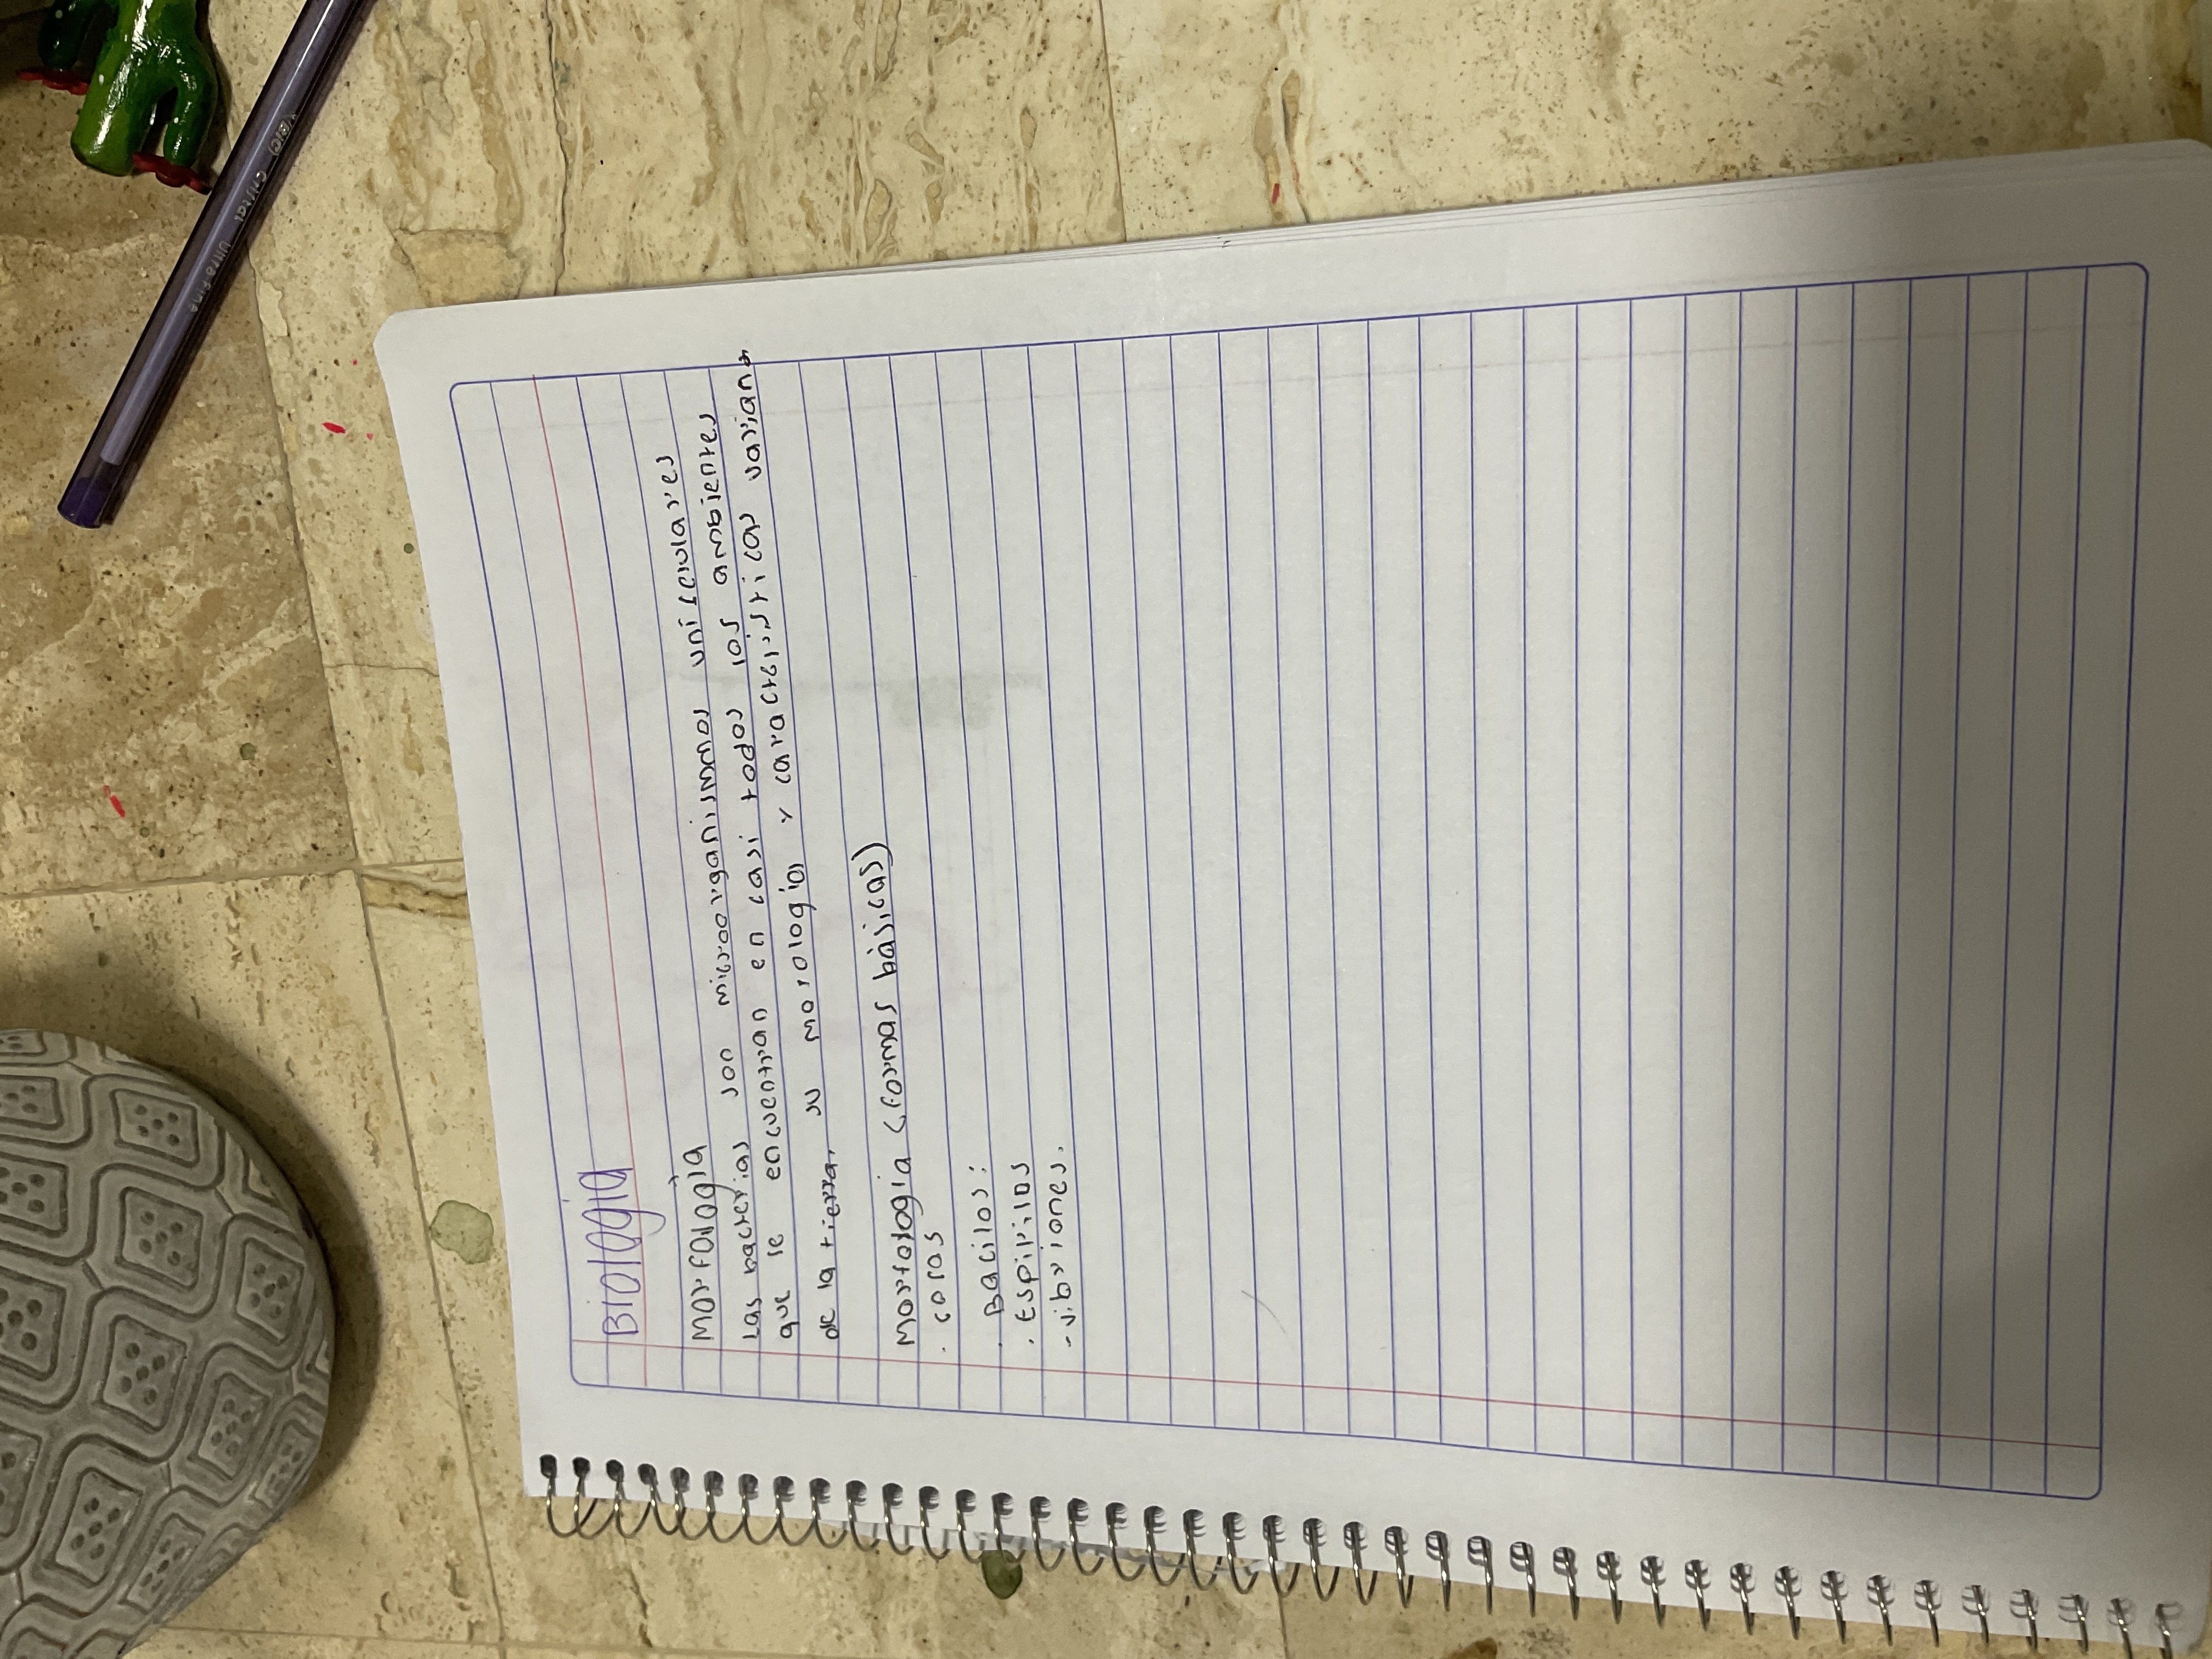 Biología
Morfología
Las bacterias son microorganismos unicelulares
que se encuentran en casi todos los ambientes
de la tierra, su morología y características varian
Morfología (formas básicas)
. cocos
. Bacilos:
. Espirilos
- vibriones.
BIC Cristal Ultra Fine